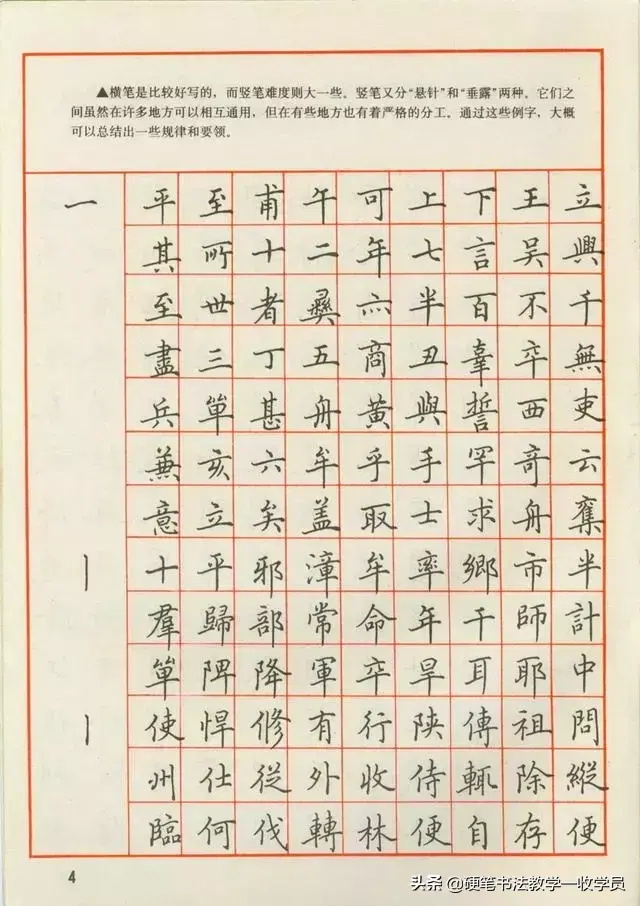 ▲横笔是比较好写的，而竖笔难度则大一些。竖笔又分“悬针”和“垂露”两种。它们之
间虽然在许多地方可以相互通用，但在有些地方也有着严格的分工。通过这些例字，大概
可以总结出一些规律和要领。
一 平 至 甫 午 可 上 下 王 立
其 所 十 二 年 七 言 吴 興
至 世 者 彝 亦 半 百 不 千
盡 三 丁 五 商 丑 辜 卒 無
兵 單 甚 舟 黄 與 誓 西 吏
兼 亥 六 牟 乎 手 罕 奇 云
意 立 矣 盖 取 士 求 舟 奮
丨 十 平 邪 漳 牟 率 鄉 市 半
羣 歸 部 常 命 年 干 師 計
單 陴 降 軍 卒 旱 耳 耶 中
丨 使 悍 修 有 行 陕 傳 祖 問
州 仕 從 外 收 侍 輒 除 縱
臨 何 伐 轉 林 便 自 存 便
4
头条 @硬笔书法教学一收学员